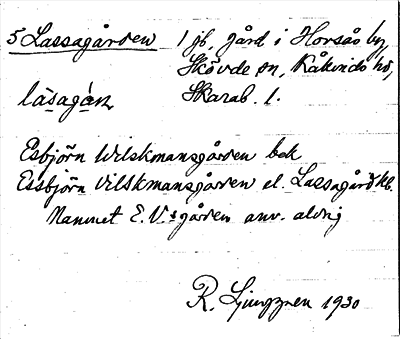 5 Lassagården 1 jb. gård i Horsås by,
Skövde sn, Kåkinds hd,
läsagán Skarab. l.
Esbjörn Wilskmansgården bok
Essbjörn Vilskmansgården el. Lassagård kb.
Namnet E. V:sgården anv. aldrig
R. Ljunggren 1930